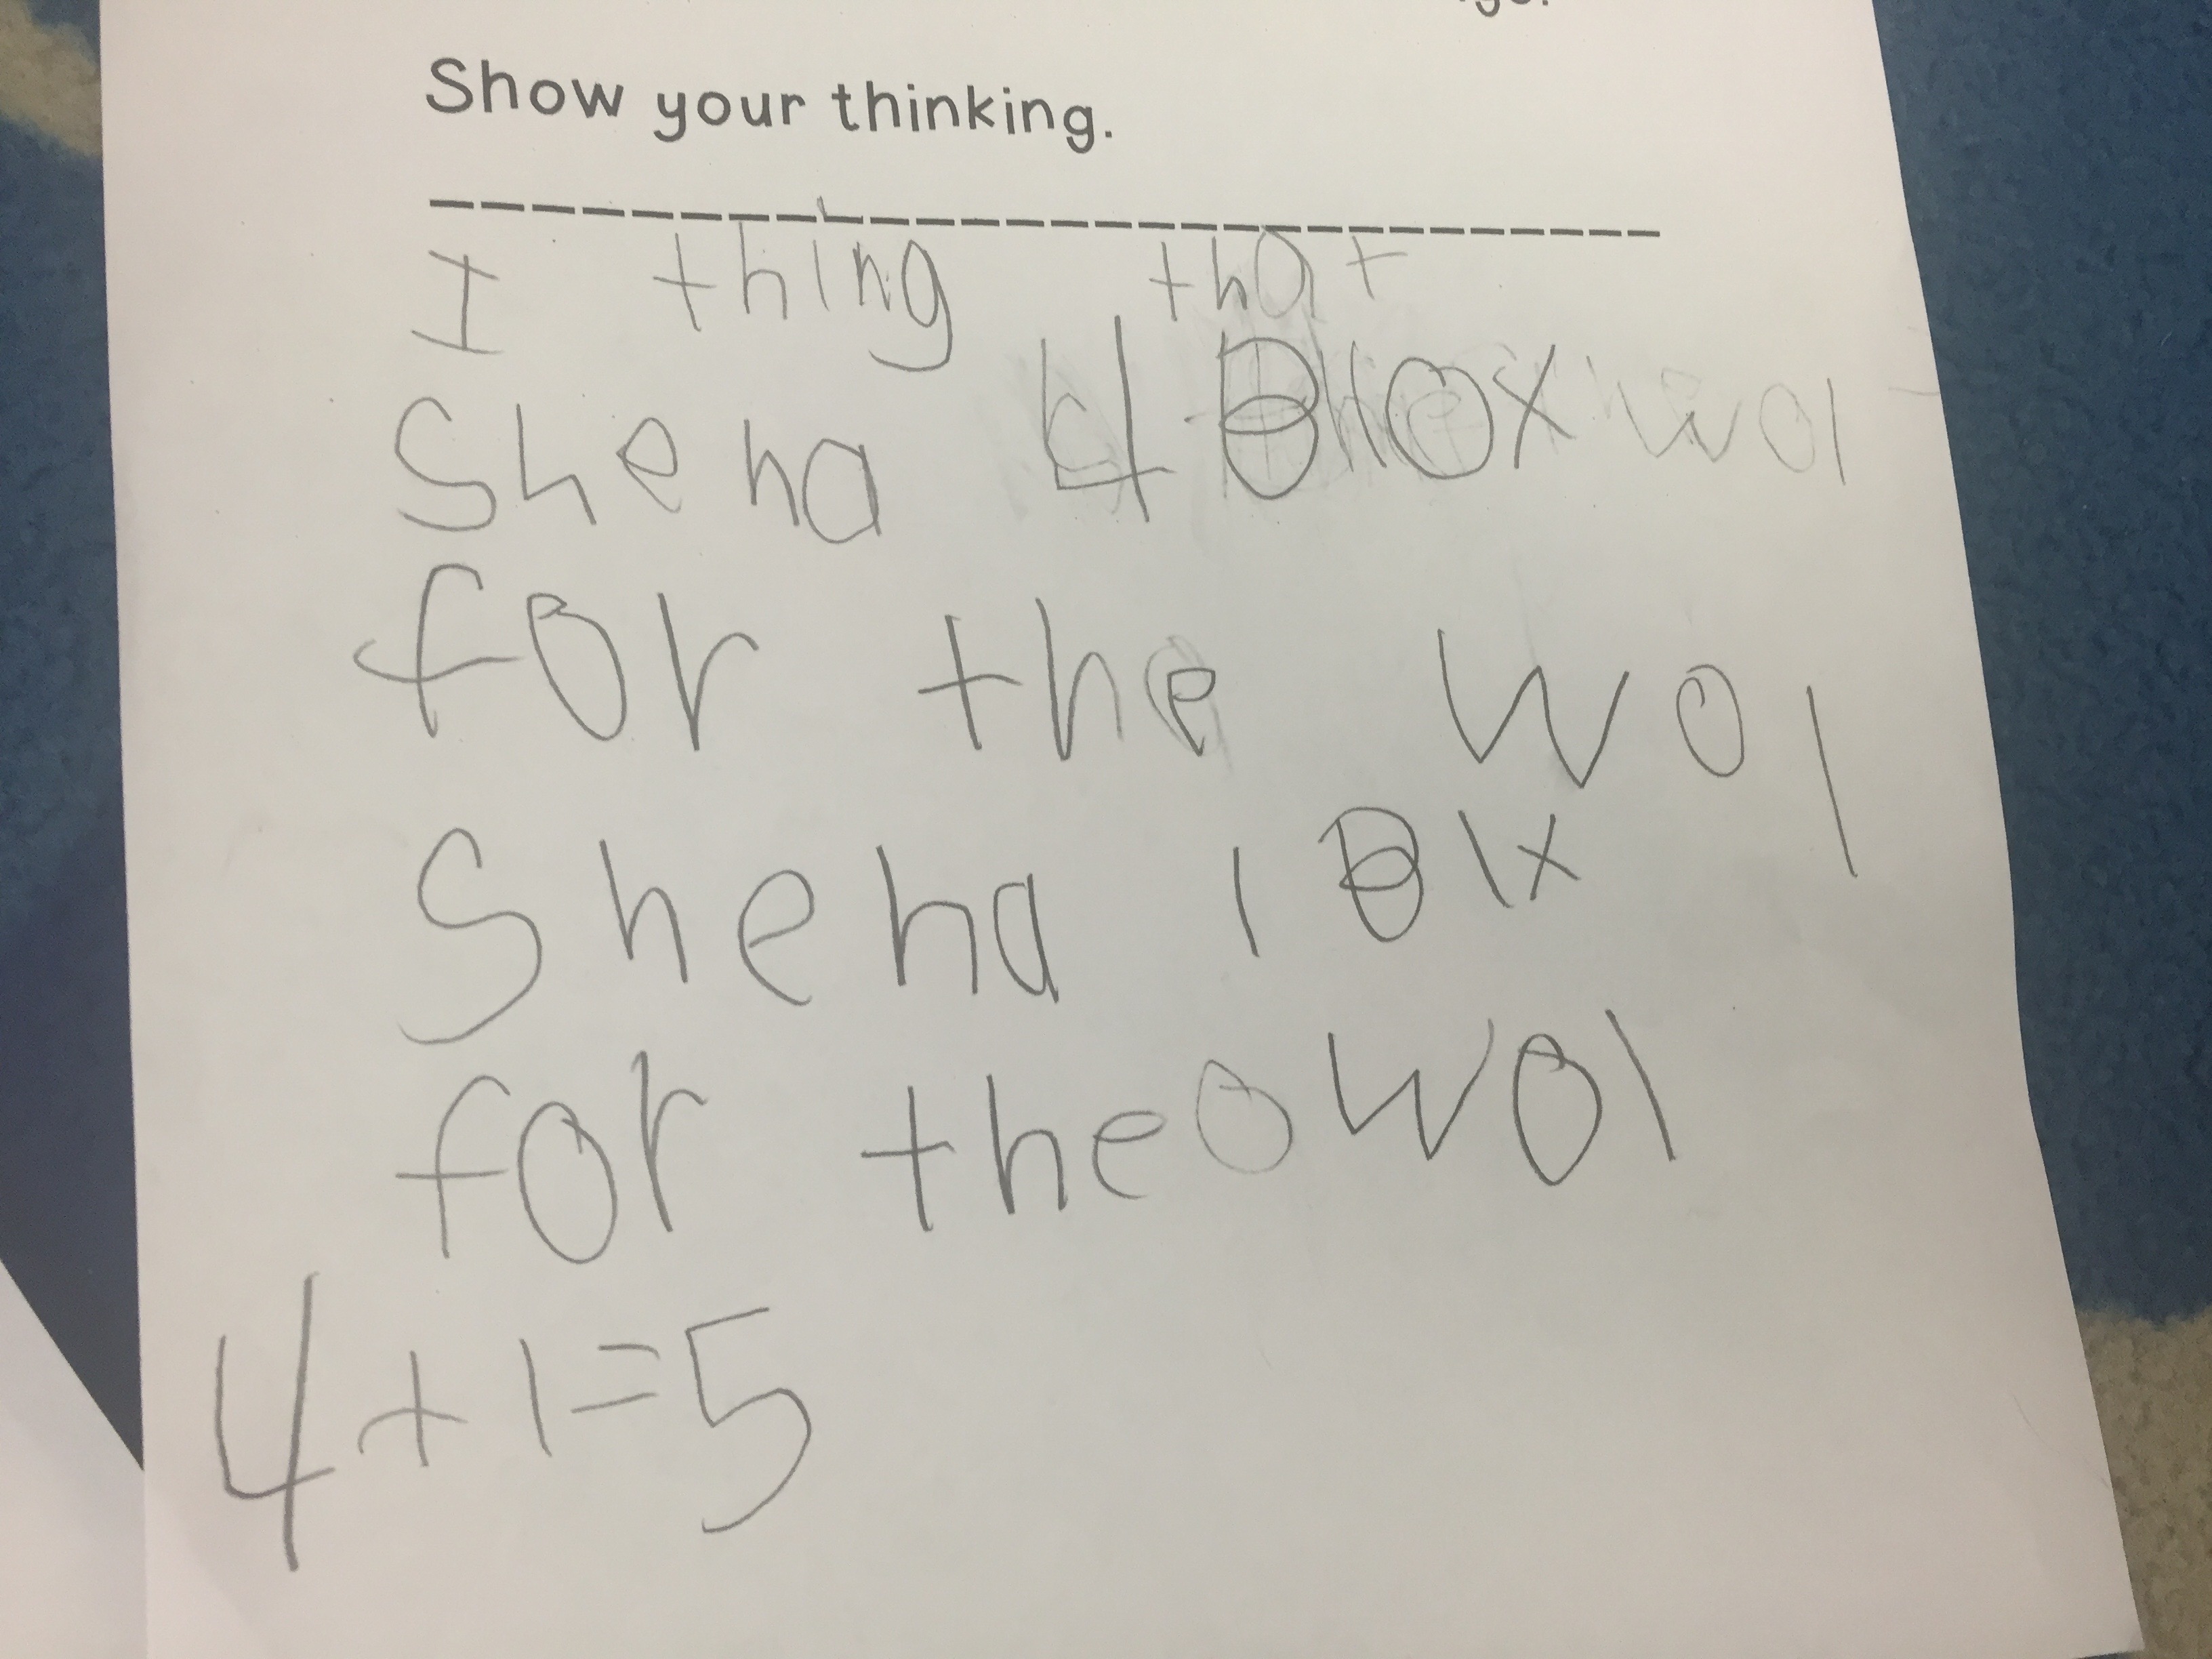 Show your thinking.
I thing that
Shena 4 Blox wol
for the wol
Shena 1 Blx
for theo wol
4+1=5